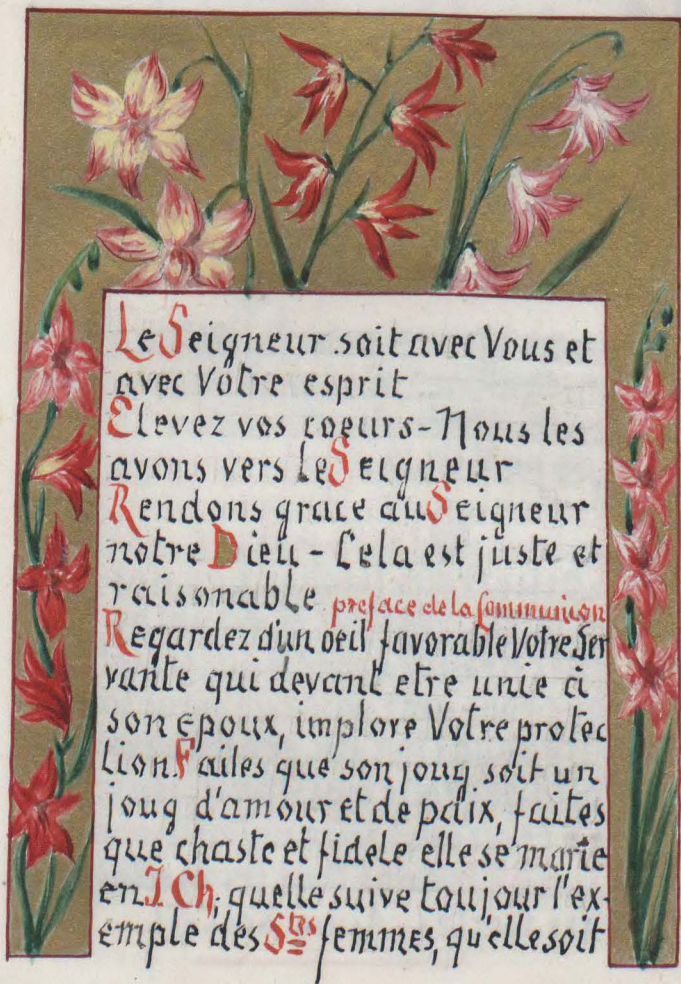 Le Seigneur soit avec Vous et
avec Votre esprit
Elevez vos coeurs - Nous les
avons vers le Seigneur
Rendons grace au Seigneur
notre Dieu - Cela est juste et
raisonable preface de la Communion
Regardez d'un oeil favorable Votre Ser
vante qui devant etre unie à
son epoux, implore Votre protec
tion. Faites que son joug soit un
joug d'amour et de paix, faites
que chaste et fidele elle se marie
en J. Ch; quelle suive toujour l'ex-
emple des Stes femmes, qu'elle soit